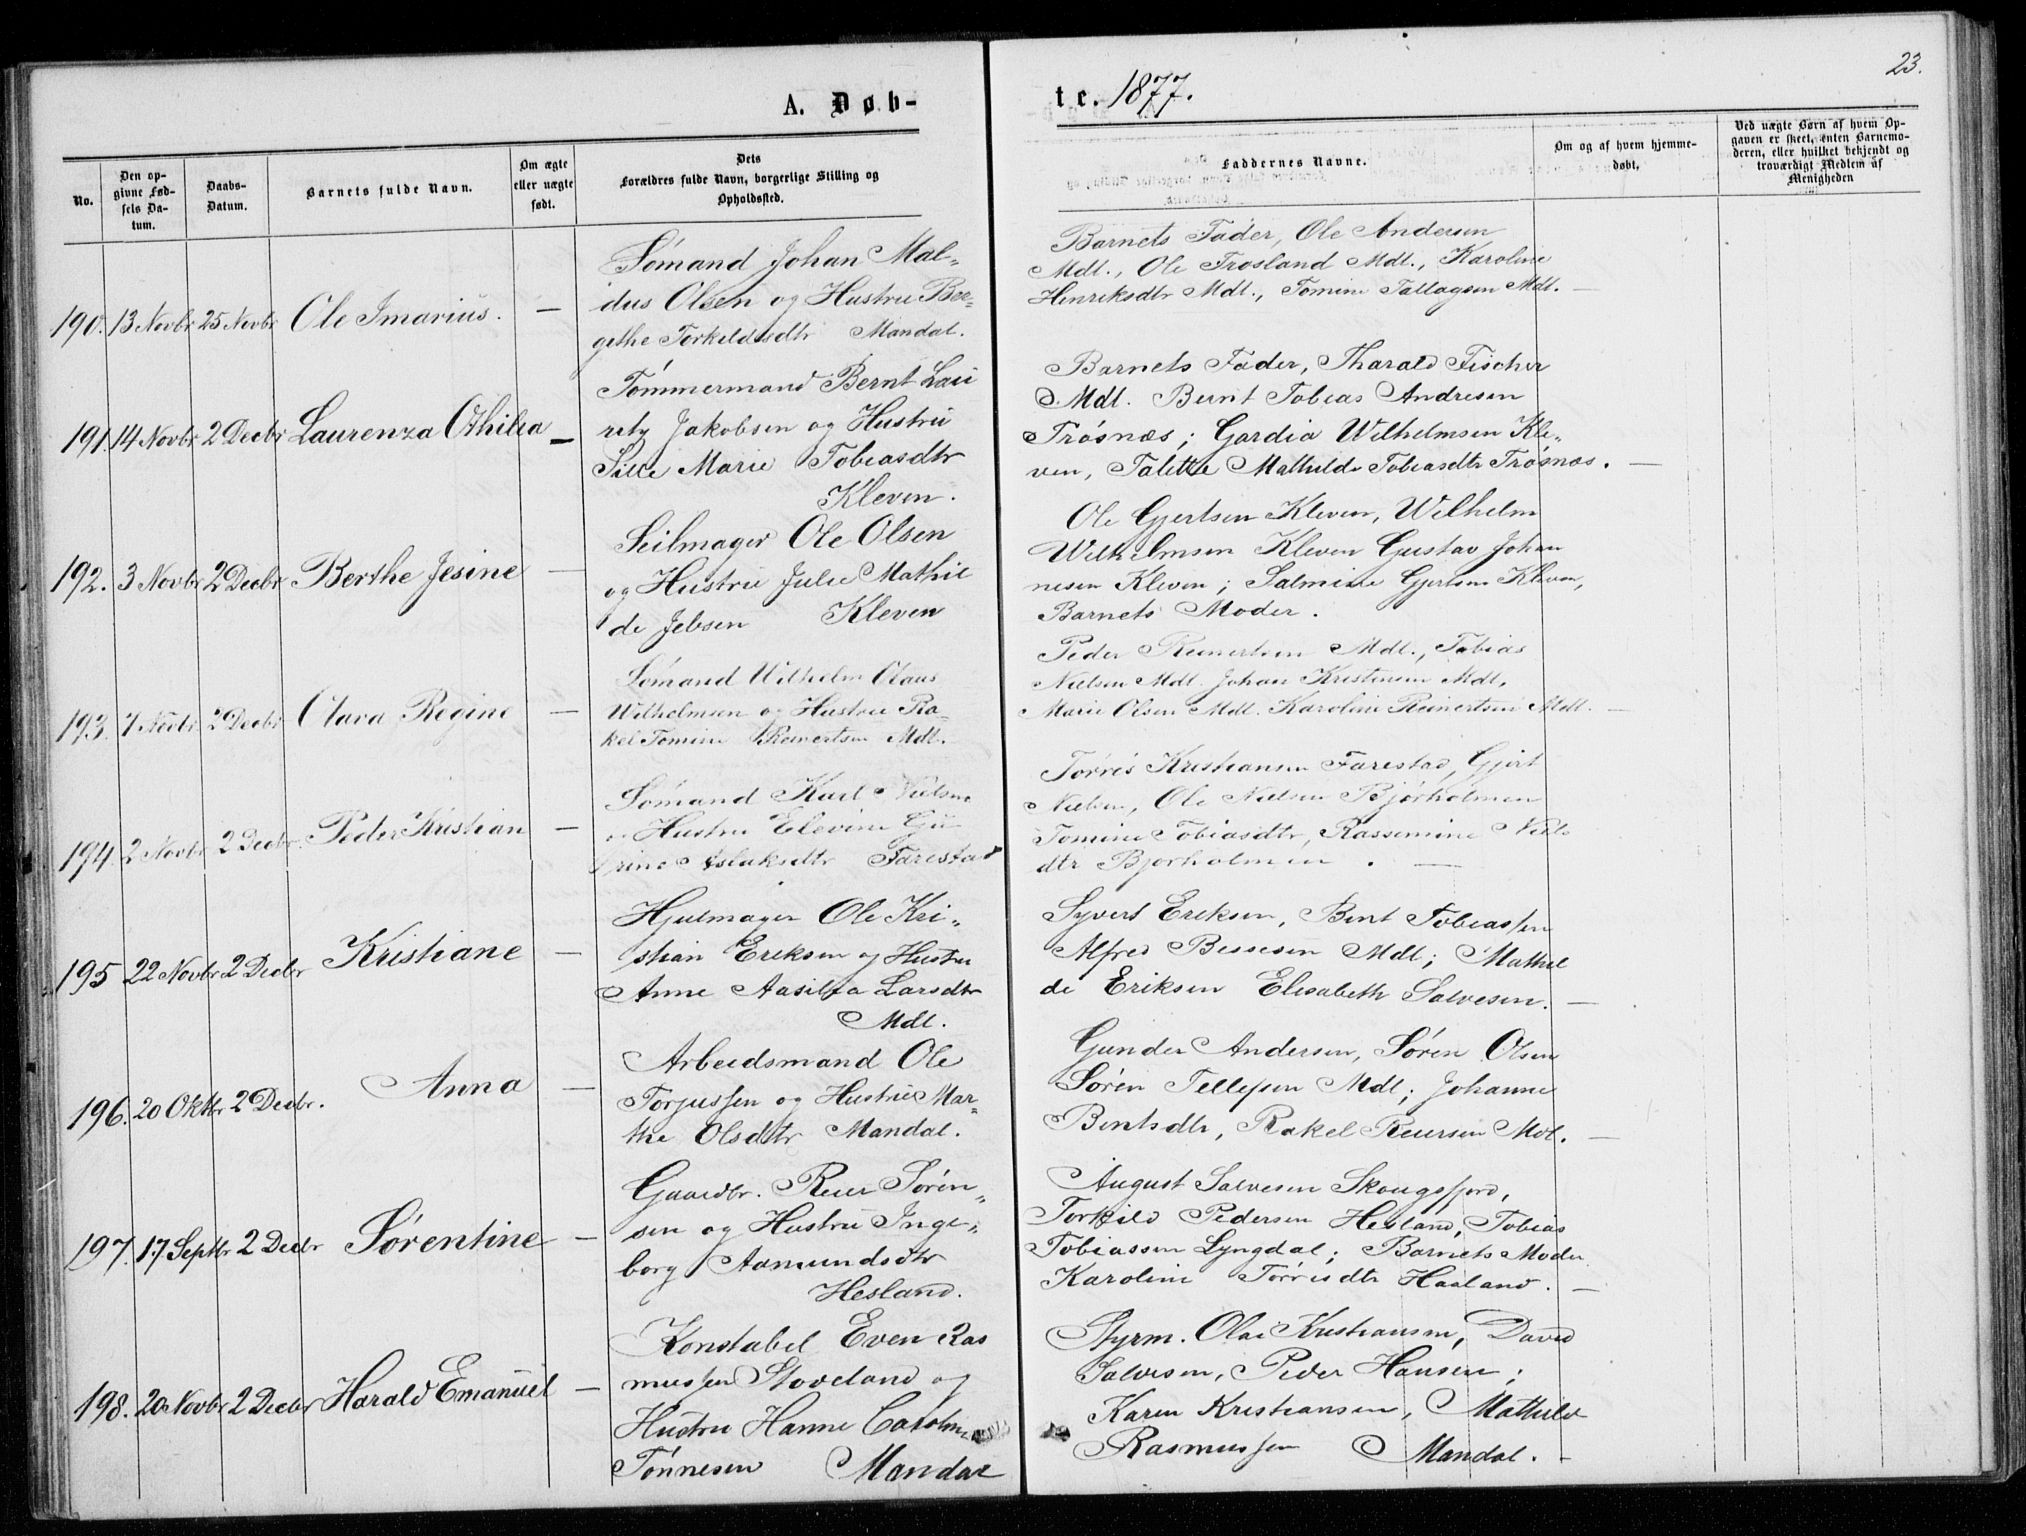 23.
A. Døb-
te. 1877.
No.
Den op-
givne Fød-
sels Da-
tum.
Daabs-
Datum.
Barnets fulde Navn.
Om ægte
eller uægte
født.
Dets
Forældres fulde Navn, borgerlige Stilling og
Opholdssted.
Faddernes Navne.
Om og af hvem hjemme-
døbt.
Ved uægte Børn af hvem Op-
gaven er skeet, enten Barnemo-
deren, eller hvilket bekjendt og
troværdigt Medlem af
Menigheden
190. 13 Novbr 25 Novbr Ole Imarius. —
Sømand Johan Mal-
dus Olsen og Hustru Ber-
gethe Torkeldsdtr Mandal.
Barnets Fader, Ole Andersen
Mdl., Ole Frosland Mdl., Karoline
Henriksdtr Mdl., Tomine Tallagsen Mdl. —
191. 14 Novbr 2 Decbr Laurenza Othilia —
Tømmermand Bernt Lau
retz Jakobsen og Hustru
Sille Marie Tobiasdtr
Kleven.
Barnets Fader, Tharald Fischer
Mdl. Bernt Tobias Andresen
Trøsnæs; Gardia Wilhelmsen Kle-
ven, Talette Mathilde Tobiasdtr Trøsnæs. —
192. 3 Novbr 2 Decbr Berthe Jesine —
Seilmager Ole Olsen
og Hustru Julie Mathil
de Jebsen Kleven
Ole Gjertsen Kleven, Wilhelm
Wilhelmsen Kleven Gustav Johan
nesen Kleven; Salmine Gjertsen Kleven,
Barnets Moder.
193. 7 Novbr 2 Decbr Clara Regine —
Sømand Wilhelm Olaus
Wilhelmsen og Hustru Ra-
kel Tomine Reinertsen Mdl.
Peder Reinertsen Mdl., Tobias
Nielsen Mdl. Johan Kristensen Mdl,
Marie Olsen Mdl. Karoline Reinertsen Mdl. —
194 2 Novbr 2 Decbr. Peder Kristian —
Sømand Karl Nielsen
og Hustru Elevine Gu
rine Aslaksdtr Farestad
Torris Kristiansen Farestad, Gjert
Nielsen, Ole Nielsen Bjørholmen
Tomine Tobiasdtr, Rassemine Niels
dtr Bjørholmen. —
195 22 Novbr 2 Decbr Kristiane —
Hjulmager Ole Kri-
stian Eriksen og Hustru
Anne Aasilia Larsdtr
Mdl.
Syvert Eriksen, Bent Tobiassen
Alfred Bessesen Mdl; Mathil
de Eriksen Elisabeth Salvesen. —
196. 20 Oktbr 2 Decbr. Anna —
Arbeidsmand Ole
Torjussen og Hustru Mar-
the Olsdtr Mandal.
Gunder Andersen, Søren Olsen
Søren Tellefsen Mdl; Johanne
Bentsdtr, Rakel Reiersen Mdl. —
197. 17 Septbr 2 Decbr Sørentine —
Gaardbr. Reier Søren-
sen og Hustru Inge-
borg Aamundsdtr
Hesland.
August Salvesen Skougsfjord,
Torkild Pedersen Hesland, Tobias
Tobiassen Lyngdal; Barnets Moder
Karoline Torrisdtr Haaland. —
198. 20 Novbr 2 Decbr Harald Emanuel —
Konstabel Even Ras
mussen Stoveland og
Hustru Hanne Catolin
Tønnesen Mandal
Styrm. Olai Kristiansen, David
Salvesen, Peder Hansen;
Karen Kristiansen, Mathilde
Rasmussen Mandal. —